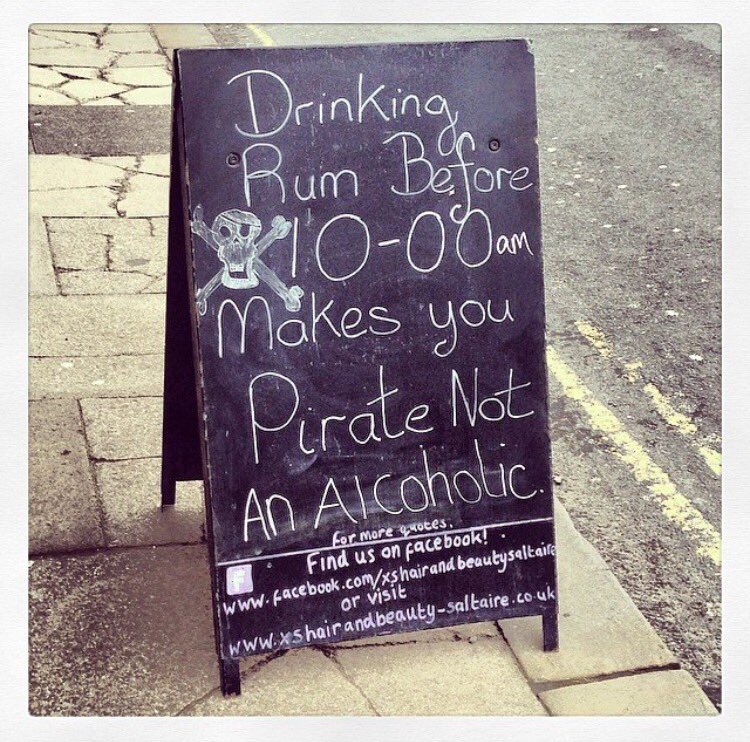 Drinking
Rum Before
10-00am
Makes you
Pirate Not
An Alcoholic.
for more quotes.
Find us on facebook!
F
www.facebook.com/xshairandbeautysaltaire
or visit
www.xshairandbeauty-saltaire.co.uk